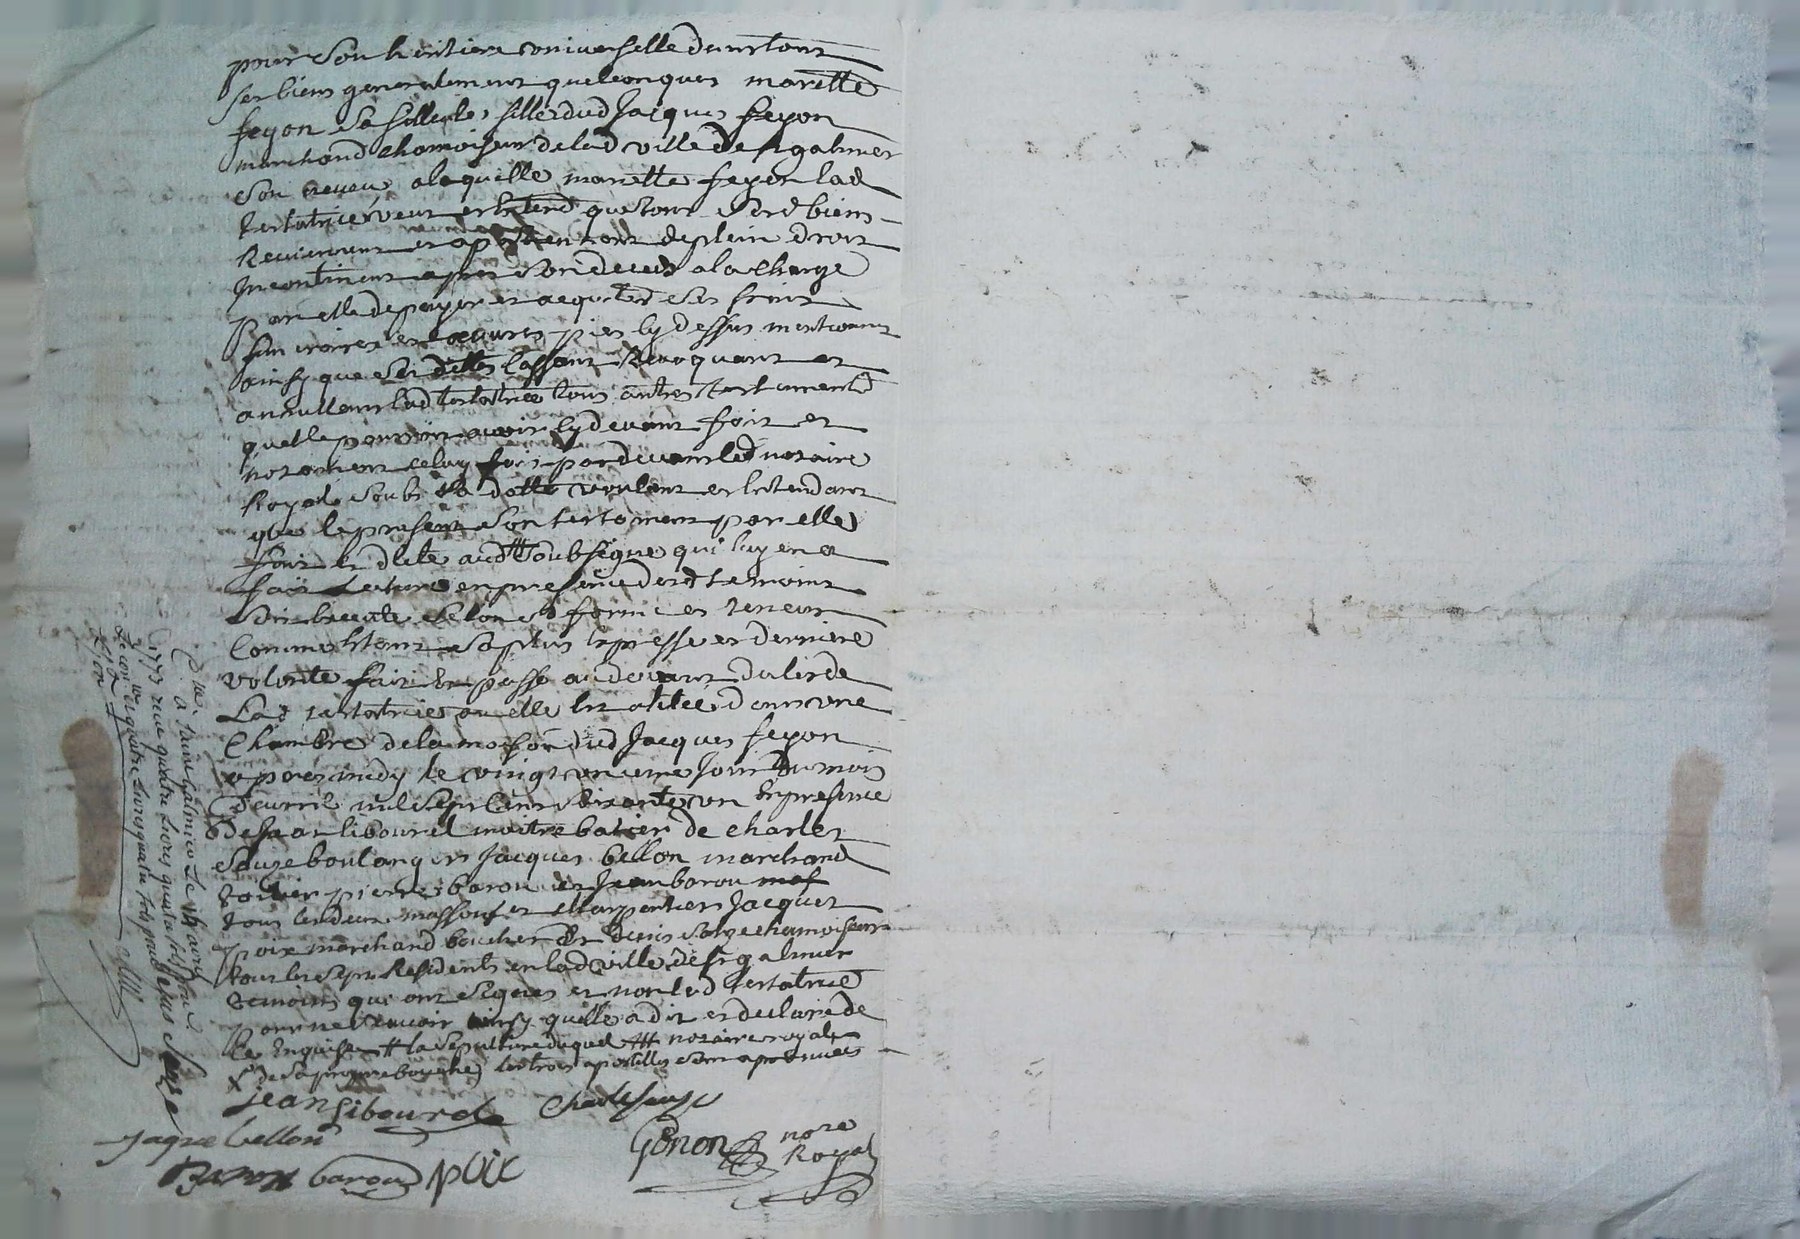 pour son heritiere universelle dans tous
ses biens generalement quelconques mariette
feyon sa fille des filles dud Jacques feyon
marchand chamoiseur de lad ville de st galmier
son neveu a laquelle mariette feyon lad
testatrice veut et entend que tous sesd biens
Reviennent et apartiennent de plein droit
Incontinent apres son deces a la charge
par elle de payer et acquiter ses frais
funeraires et oeuvres pies cy dessus mentionnés
ainsy que ses dittes Revoquant et
annullant lad testatrice tous autres testaments
quelle pourroit avoir cy devant fait et
notament celuy fait pardevant led notaire
Royal soubs sa datte voulant et entendant
que le present son testament par elle
fait et dicté aud soubsigné qui luy en a
fait Lecture en presence desd temoins
soit execute selon sa forme et teneur
Comme etant sa plus expresse et derniere
volonte fait et passé au devant du lit de
Lad testatrice ou elle est alitée dans une
Chambre de la maison dud Jacques feyon
apres midy le vingt unieme jour du mois
d'avril mil sept cent soixante un en presence
de jean sibourd maitre batier de charles
sauze boulanger Jacques bellon marchand
pierre barou et jean barou
tous les deux massons et charpentiers Jacques
poix marchand boucher et denis sauze chamoiseur
tous les sept Residents en lad ville de st galmier
temoins qui ont signes et non lad testatrice
pour ne scavoir ainsy quelle a dit et declaré de
ce enquise la sepulture duquel notaire royal
de sa propre bouche les trois apostilles sont aprouvées
jean sibourd Charle sauze
Jaque bellon Gonon nore
Royal
Baron barou poix
denis sauze
Clle a saint Galmier Le
1773 recu quatre livres quatre sols